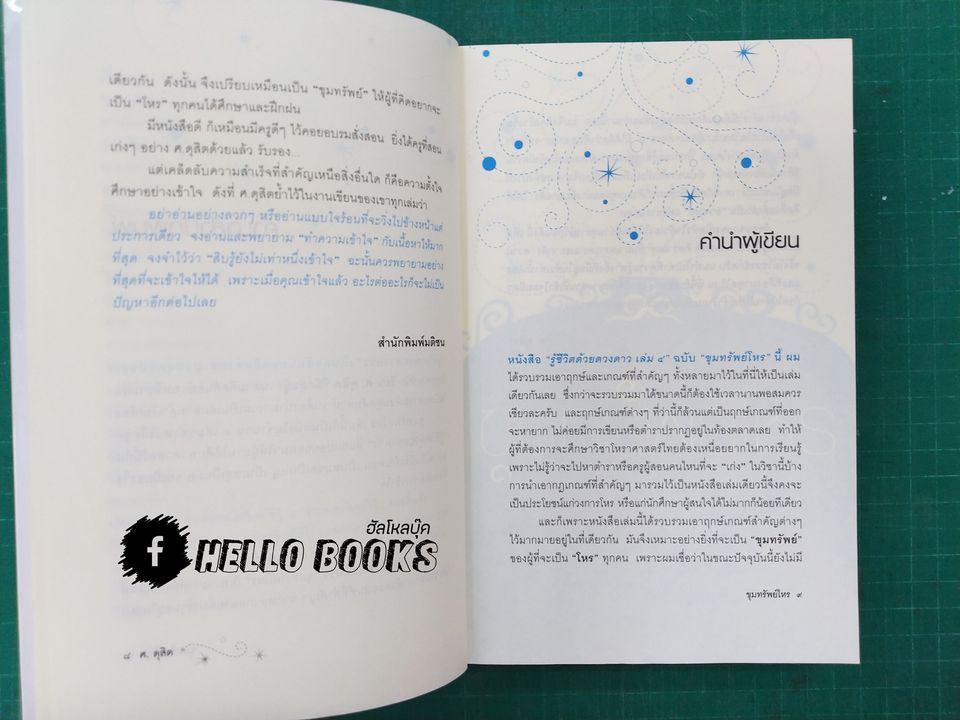 เดียวกัน ดังนั้น จึงเปรียบเหมือนเป็น “ขุมทรัพย์” ให้ผู้ที่คิดอยากจะ
เป็น “โหร” ทุกคนได้ศึกษาและฝึกฝน
มีหนังสือดี ก็เหมือนมีครูดีๆ ไว้คอยอบรมสั่งสอน ยิ่งได้ครูที่สอน
เก่งๆ อย่าง ศ.ดุสิตด้วยแล้ว รับรอง...
แต่เคล็ดลับความสำเร็จที่สำคัญเหนือสิ่งอื่นใด ก็คือความตั้งใจ
ศึกษาอย่างเข้าใจ ดังที่ ศ.ดุสิตย้ำไว้ในงานเขียนของเขาทุกเล่มว่า
อย่าอ่านอย่างลวกๆ หรืออ่านแบบใจร้อนที่จะวิ่งไปข้างหน้าแต่
ประการเดียว จงอ่านและพยายาม “ทำความเข้าใจ” กับเนื้อหาให้มาก
ที่สุด จงจำไว้ว่า “สิบรู้ยังไม่เท่าหนึ่งเข้าใจ” ฉะนั้นควรพยายามอย่าง
ที่สุดที่จะเข้าใจให้ได้ เพราะเมื่อคุณเข้าใจแล้ว อะไรต่ออะไรก็จะไม่เป็น
ปัญหาอีกต่อไปเลย
สำนักพิมพ์มติชน
ฮัลโหลบุ๊ค
f HELLO BOOKS
๘ ศ. ดุสิต
คำนำผู้เขียน
หนังสือ “รู้ชีวิตด้วยดวงดาว เล่ม ๔” ฉบับ “ขุมทรัพย์โหร” นี้ ผม
ได้รวบรวมเอาฤกษ์และเกณฑ์ที่สำคัญๆ ทั้งหลายมาไว้ในที่นี่ให้เป็นเล่ม
เดียวกันเลย ซึ่งกว่าจะรวบรวมมาได้ขนาดนี้ก็ต้องใช้เวลานานพอสมควร
เชียวละครับ และฤกษ์เกณฑ์ต่างๆ ที่ว่านี้ก็ล้วนแต่เป็นฤกษ์เกณฑ์ที่ออก
จะหายาก ไม่ค่อยมีการเขียนหรือตำราปรากฏอยู่ในท้องตลาดเลย ทำให้
ผู้ที่ต้องการจะศึกษาวิชาโหราศาสตร์ไทยต้องเหนื่อยยากในการเรียนรู้
เพราะไม่รู้ว่าจะไปหาตำราหรือครูผู้สอนคนไหนที่จะ “เก่ง” ในวิชานี้บ้าง
การนำเอากฎเกณฑ์ที่สำคัญๆ มารวมไว้เป็นหนังสือเล่มเดียวนี้จึงคงจะ
เป็นประโยชน์แก่วงการโหร หรือแก่นักศึกษาผู้สนใจได้ไม่มากก็น้อยทีเดียว
และก็เพราะหนังสือเล่มนี้ได้รวบรวมเอาฤกษ์เกณฑ์สำคัญต่างๆ
ไว้มากมายอยู่ในที่เดียวกัน มันจึงเหมาะอย่างยิ่งที่จะเป็น “ขุมทรัพย์”
ของผู้ที่จะเป็น “โหร” ทุกคน เพราะผมเชื่อว่าในขณะปัจจุบันนี้ยังไม่มี
ขุมทรัพย์โหร ๙